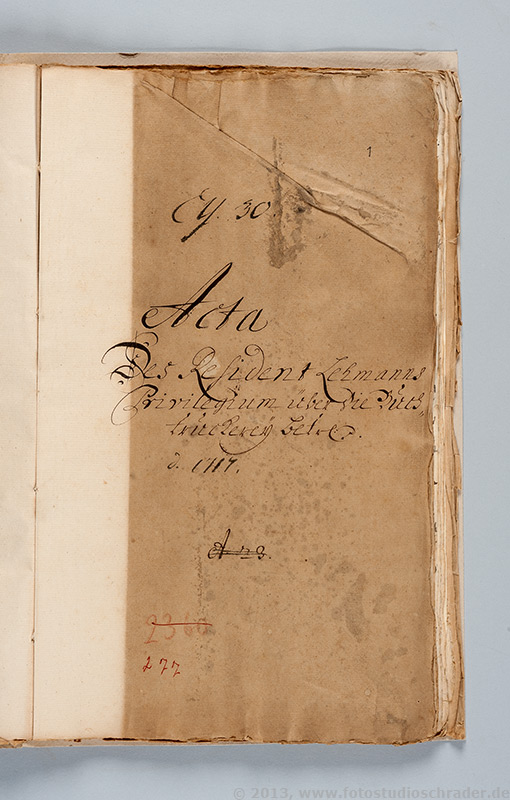 1
30.
Acta
Des Resident Lehmanns
Privilegium über die Buch-
truckereÿ betre.
d. 1717.
A n 3.
277
© 2013, www.fotostudioschrader.de